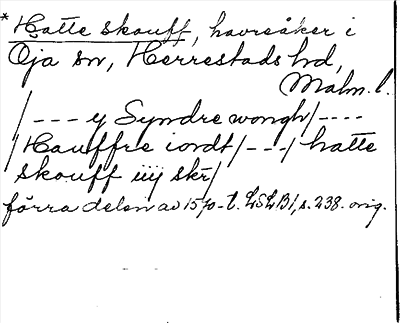 * Hatte skouff, havreåker i
Öja sn, Herrestads hd,
Malm. l.
/ - - - y Syndre wongh / - - - -
/ Hauffre iordt / - - - / hatte
skouff iiij skr /
förra delen av 15 70-t. LSLB1, s. 238. orig.